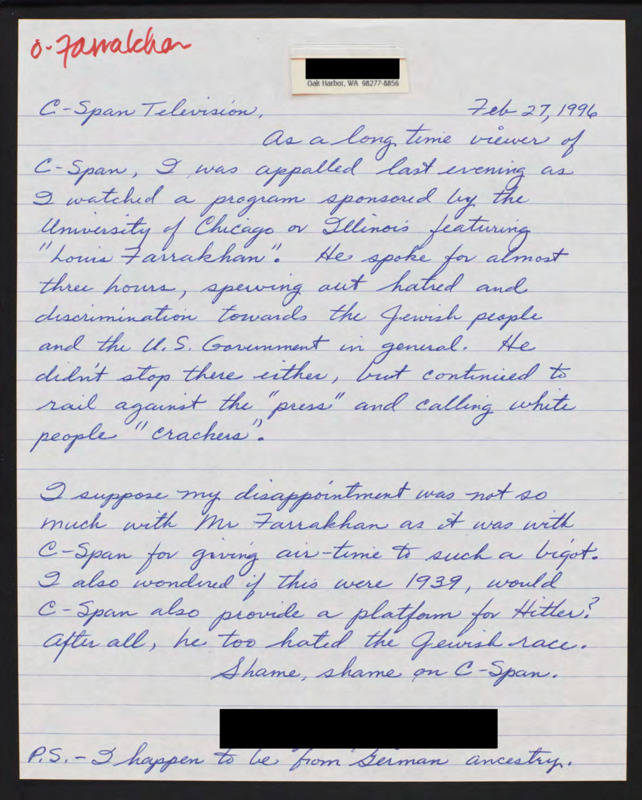 O-Farrakhan
Oak Harbor, WA 98277-8856
C-Span Television, Feb 27, 1996
As a long time viewer of
C-Span, I was appalled last evening as
I watched a program sponsored by the
University of Chicago or Illinois featuring
"Louis Farrakhan". He spoke for almost
three hours, spewing out hatred and
discrimination towards the Jewish people
and the U.S. Government in general. He
didn't stop there either, but continued to
rail against the "press" and calling white
people "crackers".
I suppose my disappointment was not so
much with Mr Farrakhan as it was with
C-Span for giving air-time to such a bigot.
I also wondered if this were 1939, would
C-Span also provide a platform for Hitler?
After all, he too hated the Jewish race.
Shame, shame on C-Span.
P.S. - I happen to be from German ancestry.